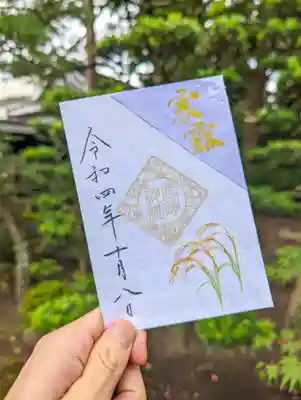 寒露
令和四年十月八日